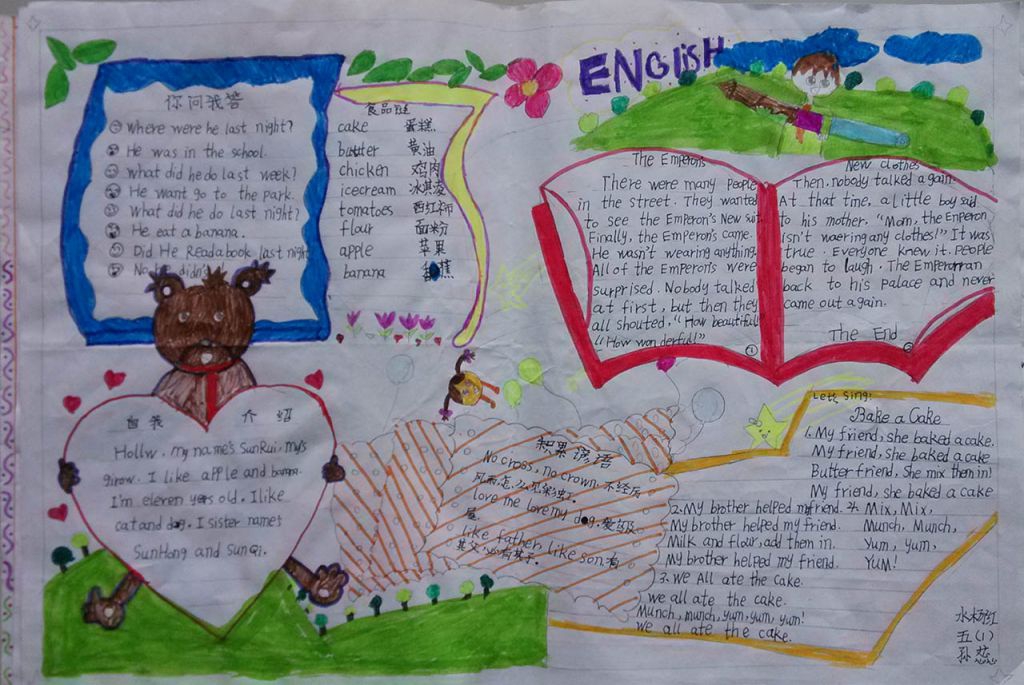 ENGliSH
你问我答
where were he last night?
He was in the school.
what did he do last week?
He want go to the park.
What did he do last night?
He eat a banana.
Did He Read a book last night
No he didn't
食品链
cake 蛋糕
butter 黄油
chicken 鸡肉
icecream 冰淇凌
tomatoes 西红柿
flour 面粉
apple 苹果
banana 蕉
The Emperor's
There were many People
in the street. They wanted
to see the Emperor's New suit
Finally, the Emperor's came.
He wasn't wearing anything.
All of the Emperor's were
surprised. Nobody talked
at first, but then they
all shouted, "How beautiful!
"How wonderful!"
①
New clothes
Then, nobody talked again.
At that time, a little boy said
to his mother. "Mom, the Enperor
isn't waering any clothes!" It was
true. Everyone knew it. People
began to laugh. The Emperor ran
back to his palace and never
came out again.
The End
②
自我 介绍
Hollw, my name's SunRui, my's
girow. I like aPPle and banna.
I'm eleren yers old. I like
cat and dog. I sister names
SunHong and sunQi.
积累谚语
No cross, no crown. 不经历
风雨,怎么见彩虹.
love me love my dog. 爱屋及
屋
like father, like son. 有
其父,必有其子.
Let's Sing!
Bake a Cake
1. My friend, she baked a cake.
My friend, she baked a cake.
Butter friend, She mix them in!
My friend, she baked a cake
2. My brother helped my friend. 4. Mix, Mix,
My brother helped my friend. Munch, Munch,
Milk and flour, add them in. Yum, yum,
My brother helped my friend. YUM!
3. we All ate the cake.
we all ate the cake.
Munch, munch, yum, yum, yum!
we all ate the cake.
五(1)